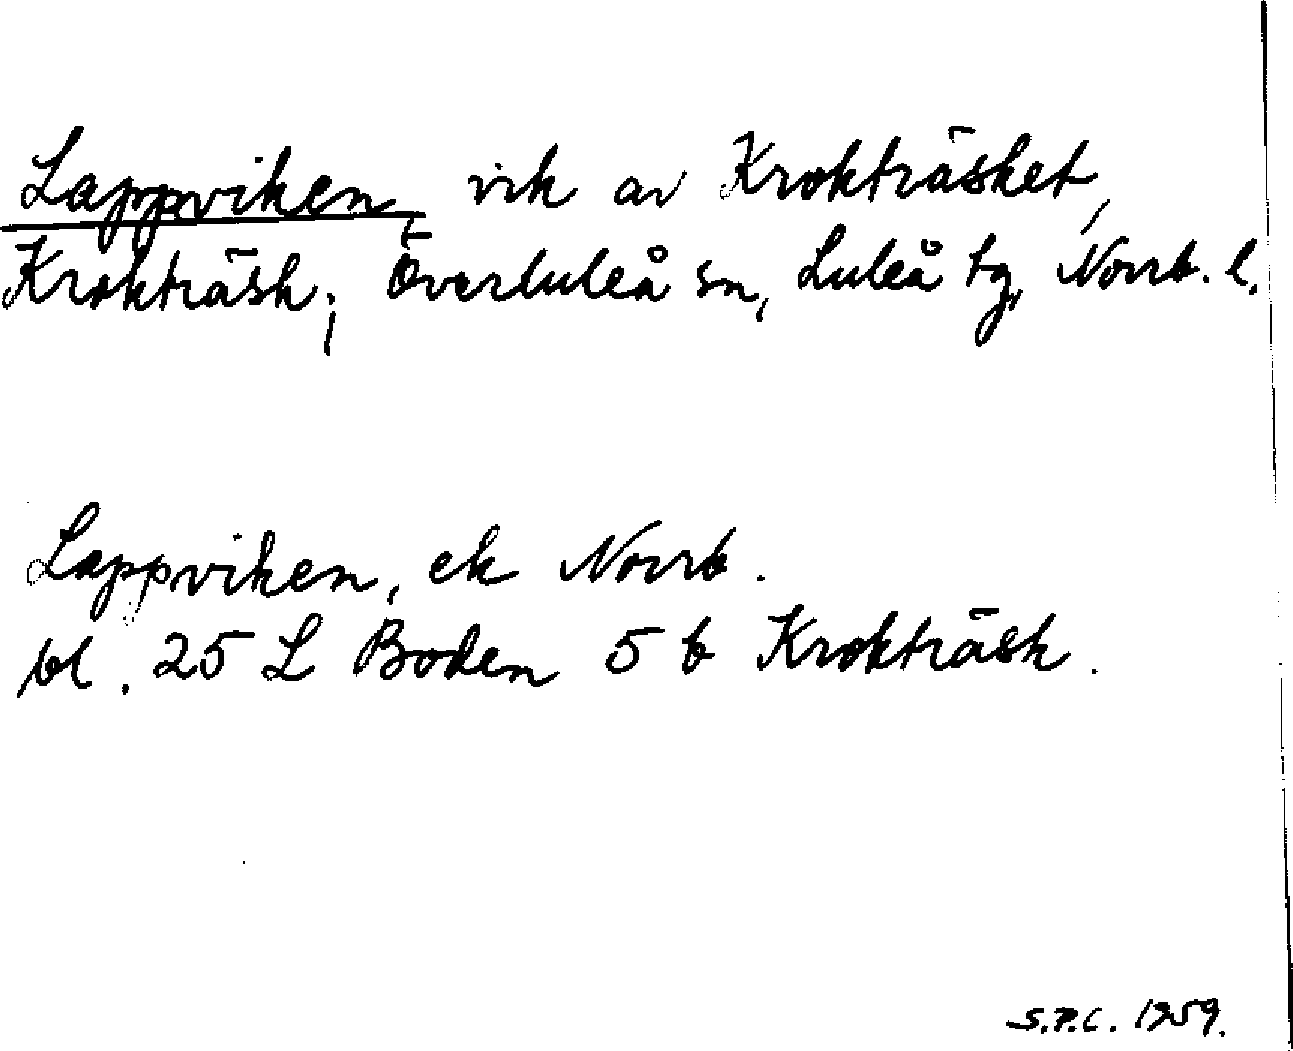 Lappviken, vik av Krokträsket,
Krokträsk; Överluleå sn, Luleå tg, Norrb. l.
Lappviken, ek Norrb.
bl. 25 L Boden 5 b Krokträsk.
S.P.C. 1959.